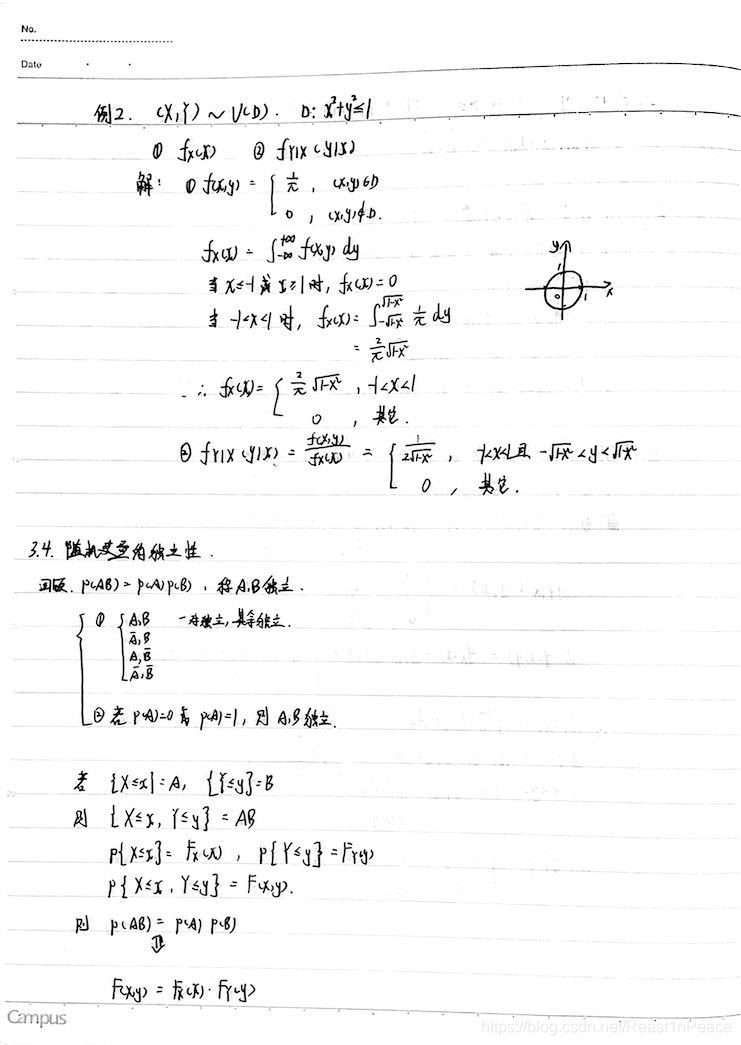 No.
Date
例2. (X,Y) ~ U(D). D: x²+y²≤1
① fx(x) ② fY|X(y|x)
解: ① f(x,y) = { 1/π , (x,y)∈D
0 , (x,y)∉D.
fx(x) = ∫_{-∞}^{+∞} f(x,y) dy
当 x≤-1 或 x≥1 时, fx(x)=0
当 -1<x<1 时, fx(x) = ∫_{-√1-x²}^{√1-x²} 1/π dy
= 2/π √1-x²
∴ fx(x) = { 2/π √1-x² , -1<x<1
0 , 其它.
② fY|X(y|x) = f(x,y)/fx(x) = { 1/2√1-x² , -1<x<1 且 -√1-x² < y < √1-x²
0 , 其它.
y
1
0
1
x
3.4. 随机变量的独立性.
回顾. P(AB) = P(A)P(B), 称A,B独立.
① { A,B 一对独立, 其余独立.
Ā,B
A,B̄
Ā,B̄
② 若 P(A)=0 或 P(A)=1, 则 A,B独立.
若 {X≤x}=A, {Y≤y}=B
则 {X≤x, Y≤y} = AB
P{X≤x} = Fx(x) , P{Y≤y} = FY(y)
P{X≤x, Y≤y} = F(x,y).
则 P(AB) = P(A) P(B)
⇓
F(x,y) = Fx(x)·FY(y)
Campus
https://blog.csdn.net/ReastInPeace